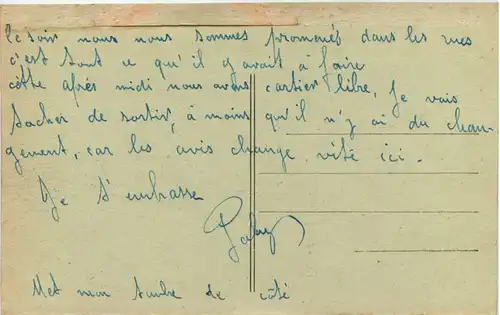 le soir nous nous sommes promenés dans les rues
c'est tout ce qu'il y avait à faire
cette après midi nous avons cartier libre, Je vais
tacher de sortir, à moins qu'il n'y ai du chan-
gement, car les avis change vite ici.
Je t'embrasse
Met mon timbre de côté